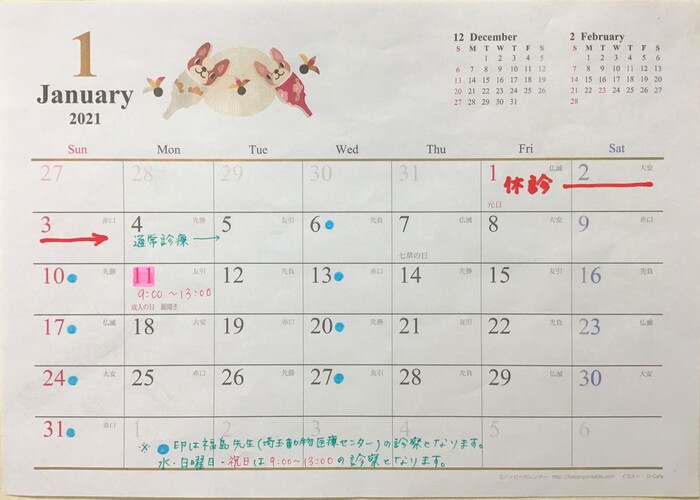 1
January
2021
12 December
S M T W T F S
1 2 3 4 5
6 7 8 9 10 11 12
13 14 15 16 17 18 19
20 21 22 23 24 25 26
27 28 29 30 31
2 February
S M T W T F S
1 2 3 4 5 6
7 8 9 10 11 12 13
14 15 16 17 18 19 20
21 22 23 24 25 26 27
28
Sun Mon Tue Wed Thu Fri Sat
27 28 29 30 31 1 仏滅 2 大安
休診
元日
3 赤口 4 先勝 5 友引 6 先負 7 仏滅 8 大安 9 赤口
通常診療
七草の日
10 先勝 11 友引 12 先負 13 赤口 14 先勝 15 友引 16 先負
9:00〜13:00
成人の日 鏡開き
17 仏滅 18 大安 19 赤口 20 先勝 21 友引 22 先負 23 仏滅
24 大安 25 赤口 26 先勝 27 友引 28 先負 29 仏滅 30 大安
31 赤口 1 2 3 4 5 6
※ ●印は福島先生(埼玉動物医療センター)の診察となります。
水・日曜日・祝日は9:00〜13:00の診察となります。